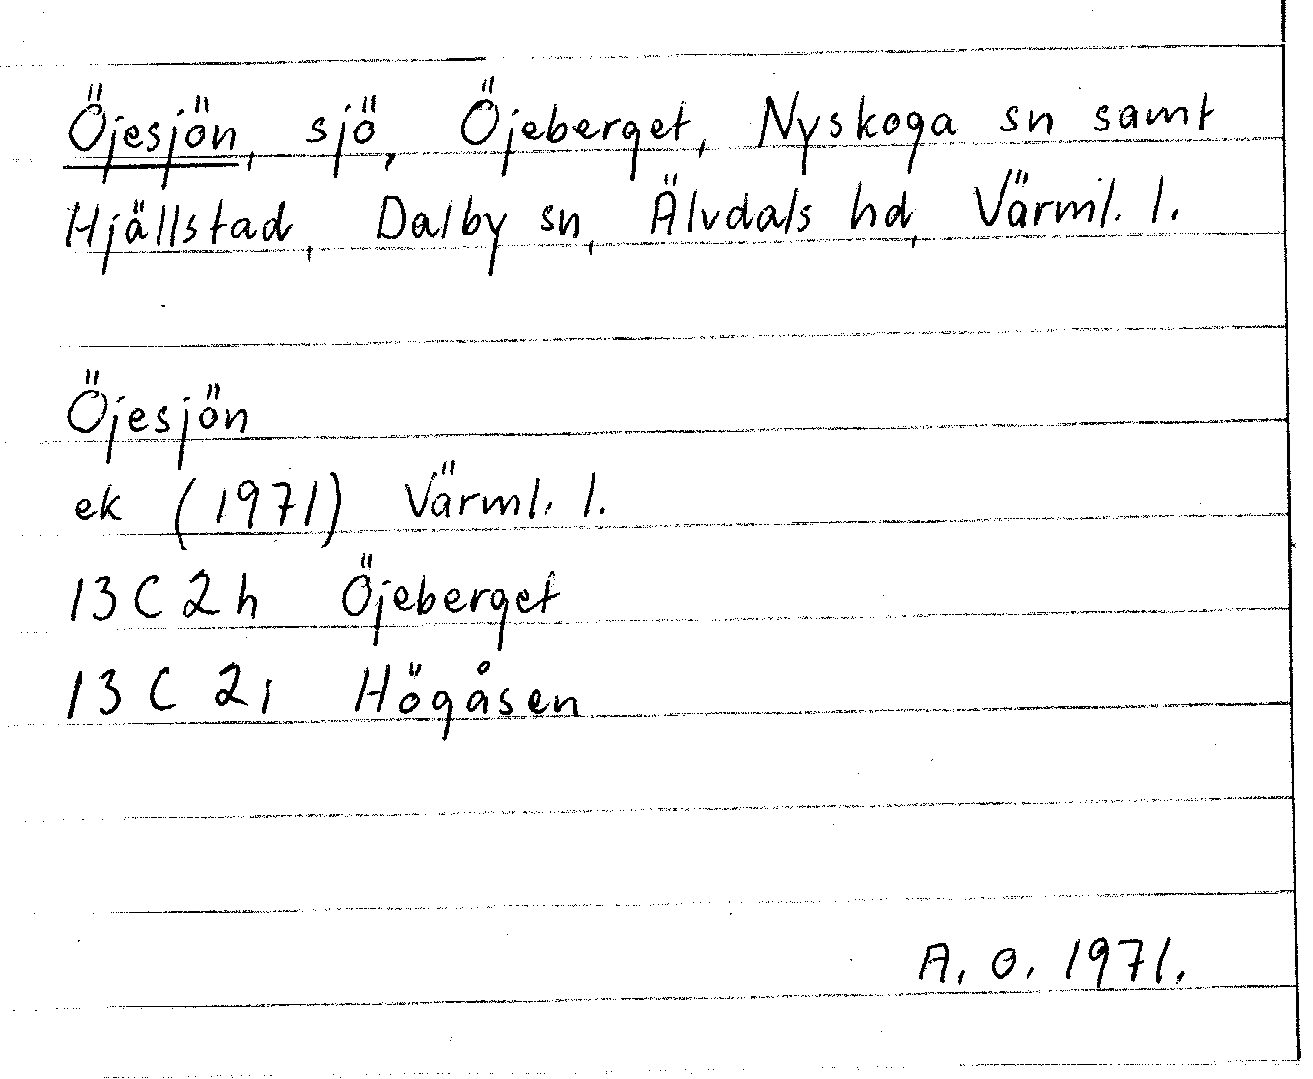 Öjesjön, sjö, Öjeberget, Nyskoga sn samt
Hjällstad, Dalby sn, Älvdals hd, Värml. l.
Öjesjön
ek (1971) Värml. l.
13 C 2 h Öjeberget
13 C 2 i Högåsen
A. O. 1971.